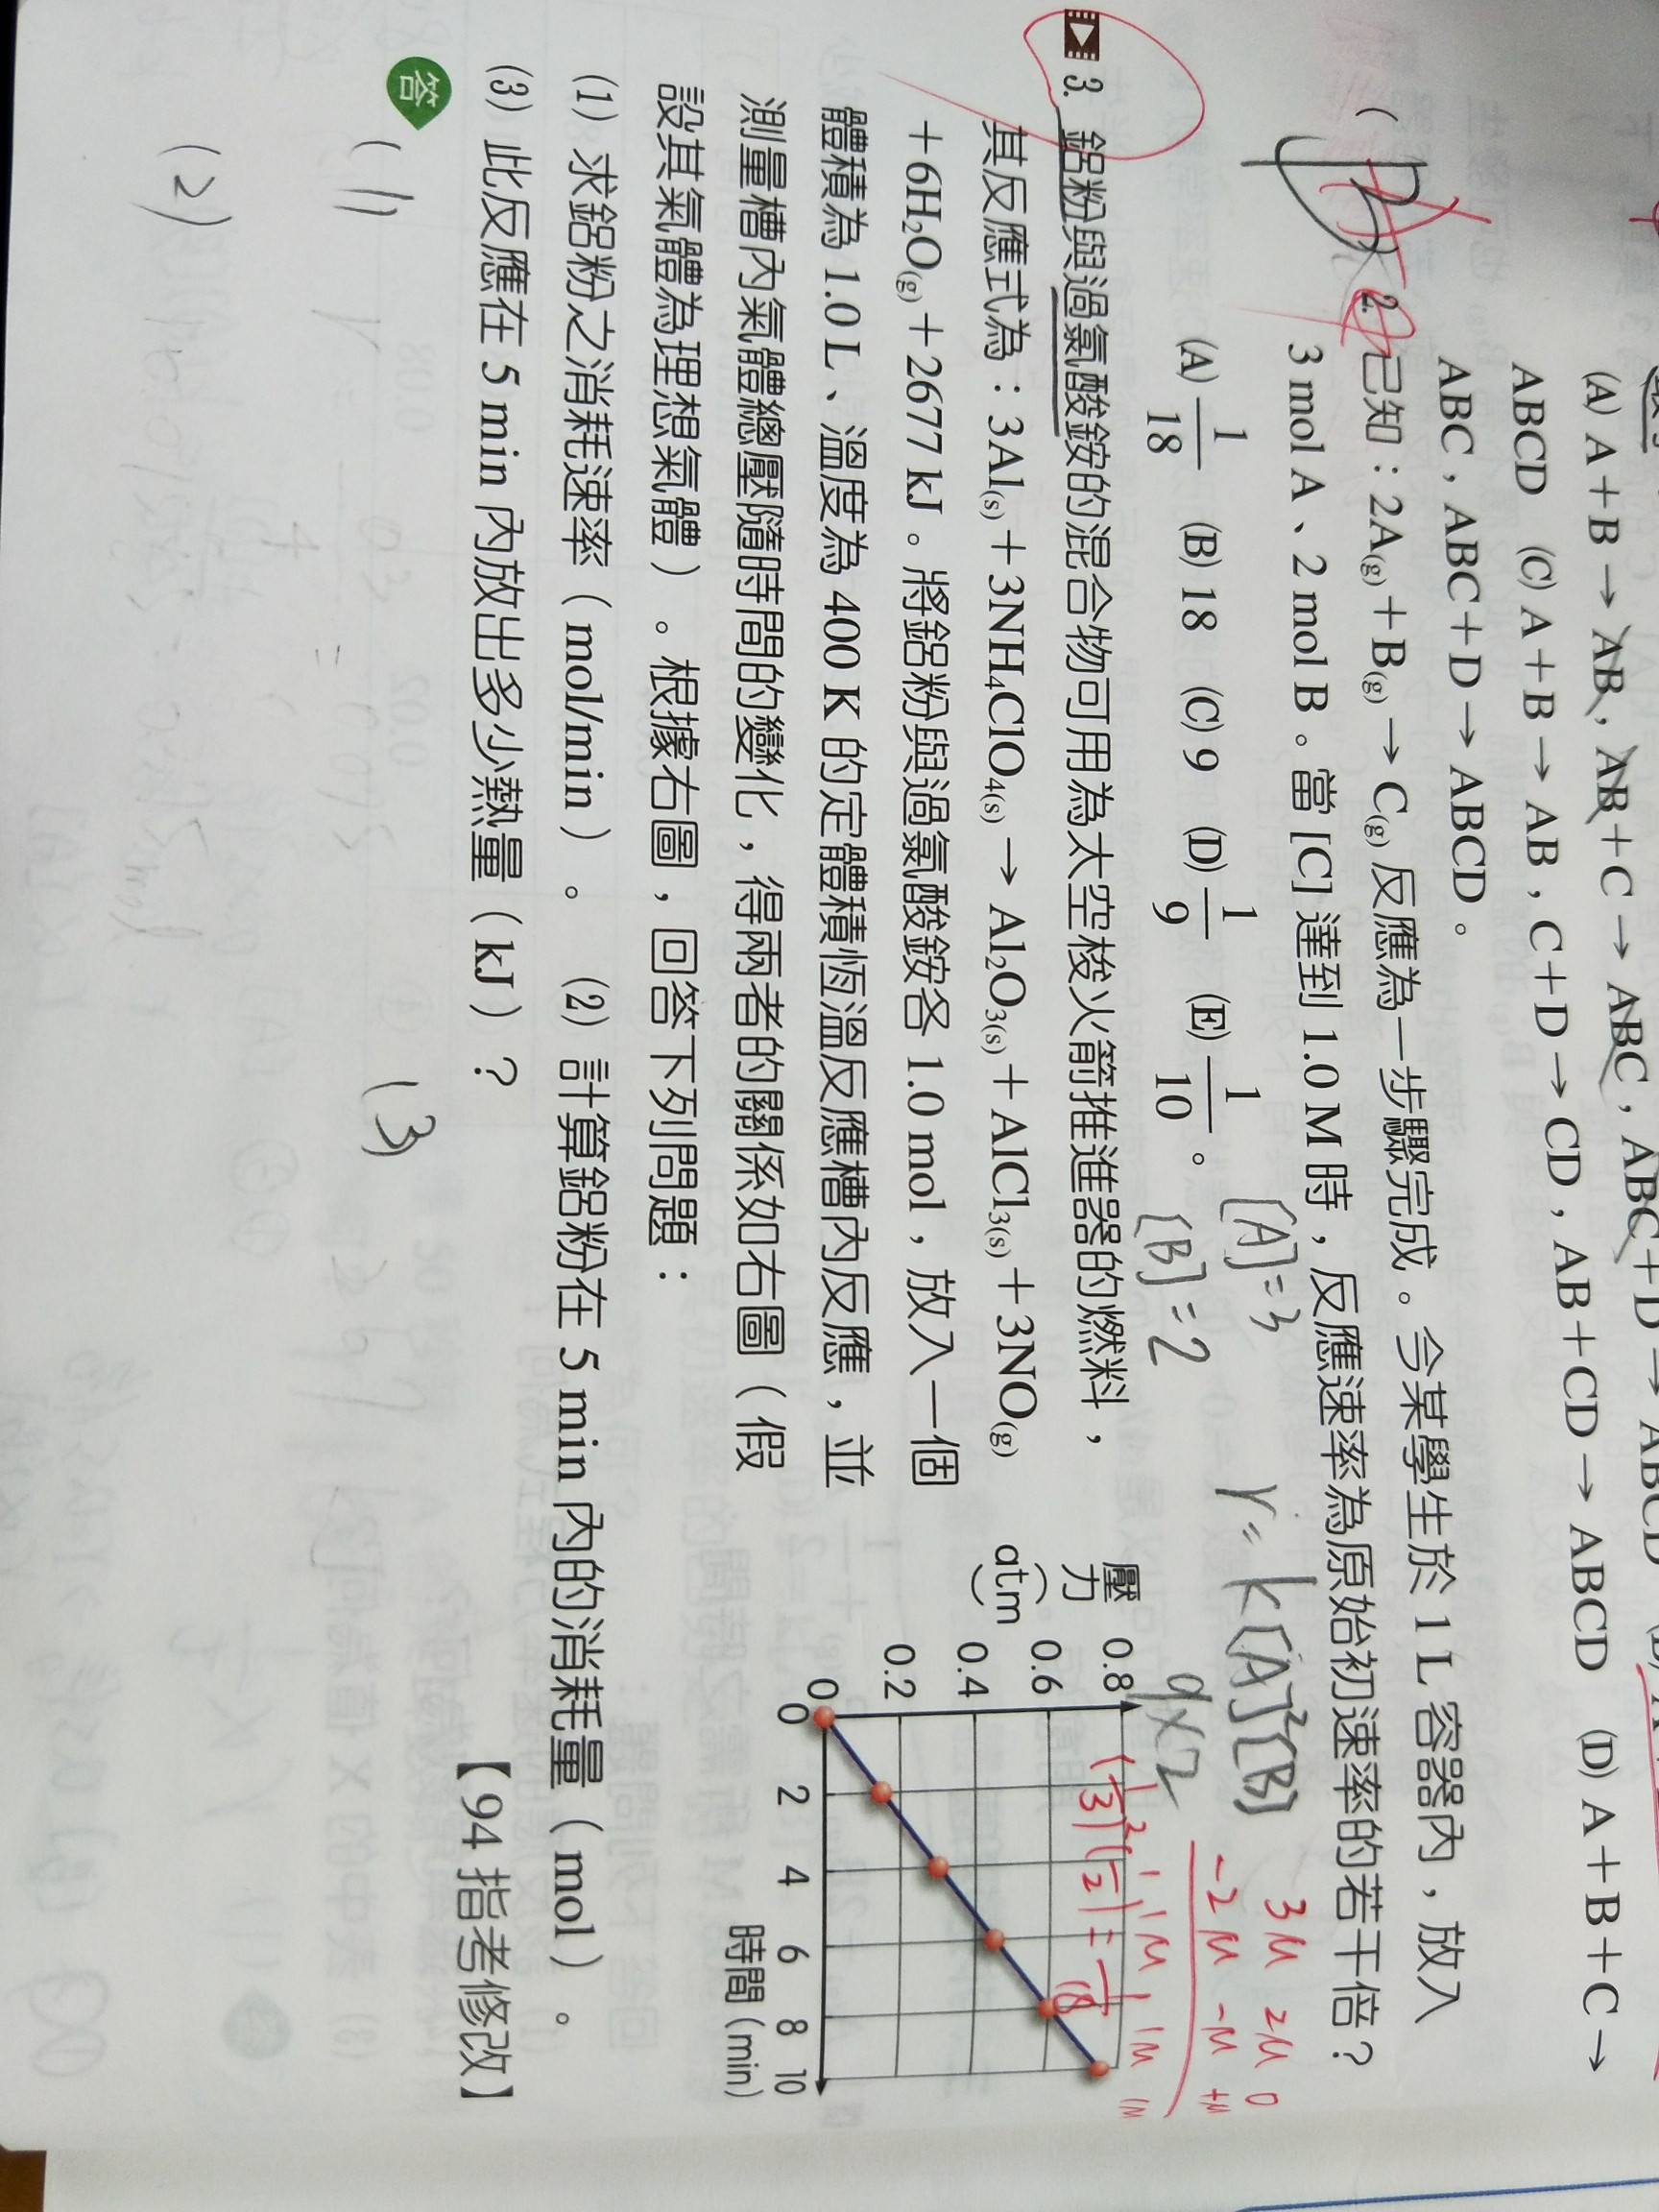 (A) A＋B → AB，AB＋C → ABC，ABC＋D → ABCD
ABCD (C) A＋B → AB，C＋D → CD，AB＋CD → ABCD (D) A＋B＋C →
ABC，ABC＋D → ABCD。
( ) 2. 已知：2A(g)＋B(g) → C(g) 反應為一步驟完成。今某學生於 1 L 容器內，放入
3 mol A、2 mol B。當 [C] 達到 1.0 M 時，反應速率為原始初速率的若干倍？
(A) 1/18 (B) 18 (C) 9 (D) 1/9 (E) 1/10。
[A]=3
[B]=2
r=k[A]²[B]
9×2
3M 2M 0
-2M -M +M
1M 1M 1M
(1/3)²(1/2)=1/18
3. 鋁粉與過氯酸銨的混合物可用為太空梭火箭推進器的燃料，
其反應式為：3Al(s)＋3NH₄ClO₄(s) → Al₂O₃(s)＋AlCl₃(s)＋3NO(g)
＋6H₂O(g)＋2677 kJ。將鋁粉與過氯酸銨各 1.0 mol，放入一個
體積為 1.0 L、溫度為 400 K 的定體積恆溫反應槽內反應，並
測量槽內氣體總壓隨時間的變化，得兩者的關係如右圖（假
設其氣體為理想氣體）。根據右圖，回答下列問題：
(1) 求鋁粉之消耗速率（mol/min）。 (2) 計算鋁粉在 5 min 內的消耗量（mol）。
(3) 此反應在 5 min 內放出多少熱量（kJ）？
【94 指考修改】
壓力(atm)
0.8
0.6
0.4
0.2
0
0 2 4 6 8 10
時間(min)
答
(1)
(3)
(2)